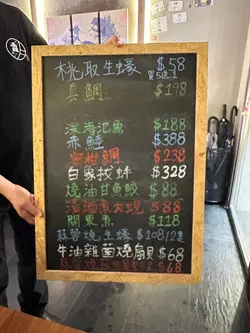 桃取生蠔 $58
買5送1
真鯛 $198
深海池魚 $188
赤鯥 $388
$238
白象拔蚌 $328
燒油甘魚鮫 $88
清酒煮大蜆 $88
關東煮 $118
蒜蓉燒生蠔 $108/2隻
牛油雜菌燒扇貝 $68
$68